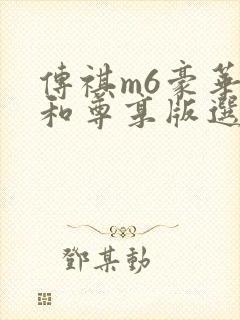 傳祺m6豪華
和尊享版選
鄧某勳